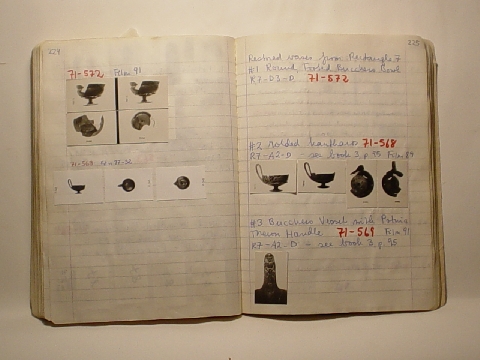 224
71-572 Film 91
71-568
225
Restored wares from Rectangle 7
#1 Round, Footed Bucchero Bowl
R7-D3-D 71-572
#2 Molded Kantharos 71-568
R7-A2-D - see book 3 p 95 Film 89
#3 Bucchero Vessel with Potnia
Theron Handle 71-569 Film 91
R7-A2-D - see book 3 p. 95